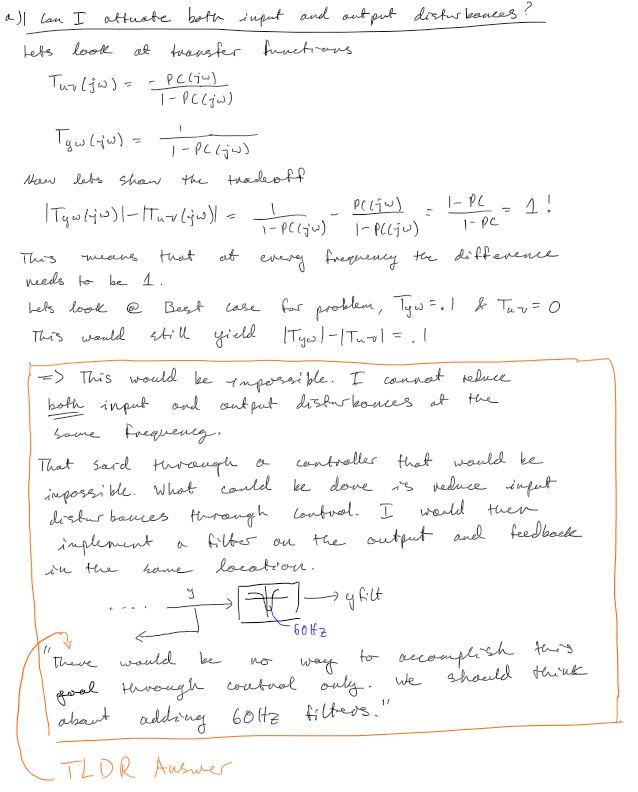 a)| Can I attuate both input and output disturbances?
Lets look at transfer functions
Tuv(jω) = -PC(jω) / 1-PC(jω)
Tyω(jω) = 1 / 1-PC(jω)
Now lets show the tradeoff
|Tyω(jω)|-|Tuv(jω)| = 1 / 1-PC(jω) - PC(jω) / 1-PC(jω) = 1-PC / 1-PC = 1!
This means that at every frequency the difference
needs to be 1.
Lets look @ Best case for problem, Tyω=.1 & Tuv=0
This would still yield |Tyω|-|Tuv|=.1
=> This would be impossible. I cannot reduce
both input and output disturbances at the
same frequency.
That said through a controller that would be
impossible. What could be done is reduce input
disturbances through control. I would then
implement a filter on the output and feedback
in the same location.
.... y → y filt
60Hz
"There would be no way to accomplish this
goal through control only. We should think
about adding 60Hz filters."
TLDR Answer